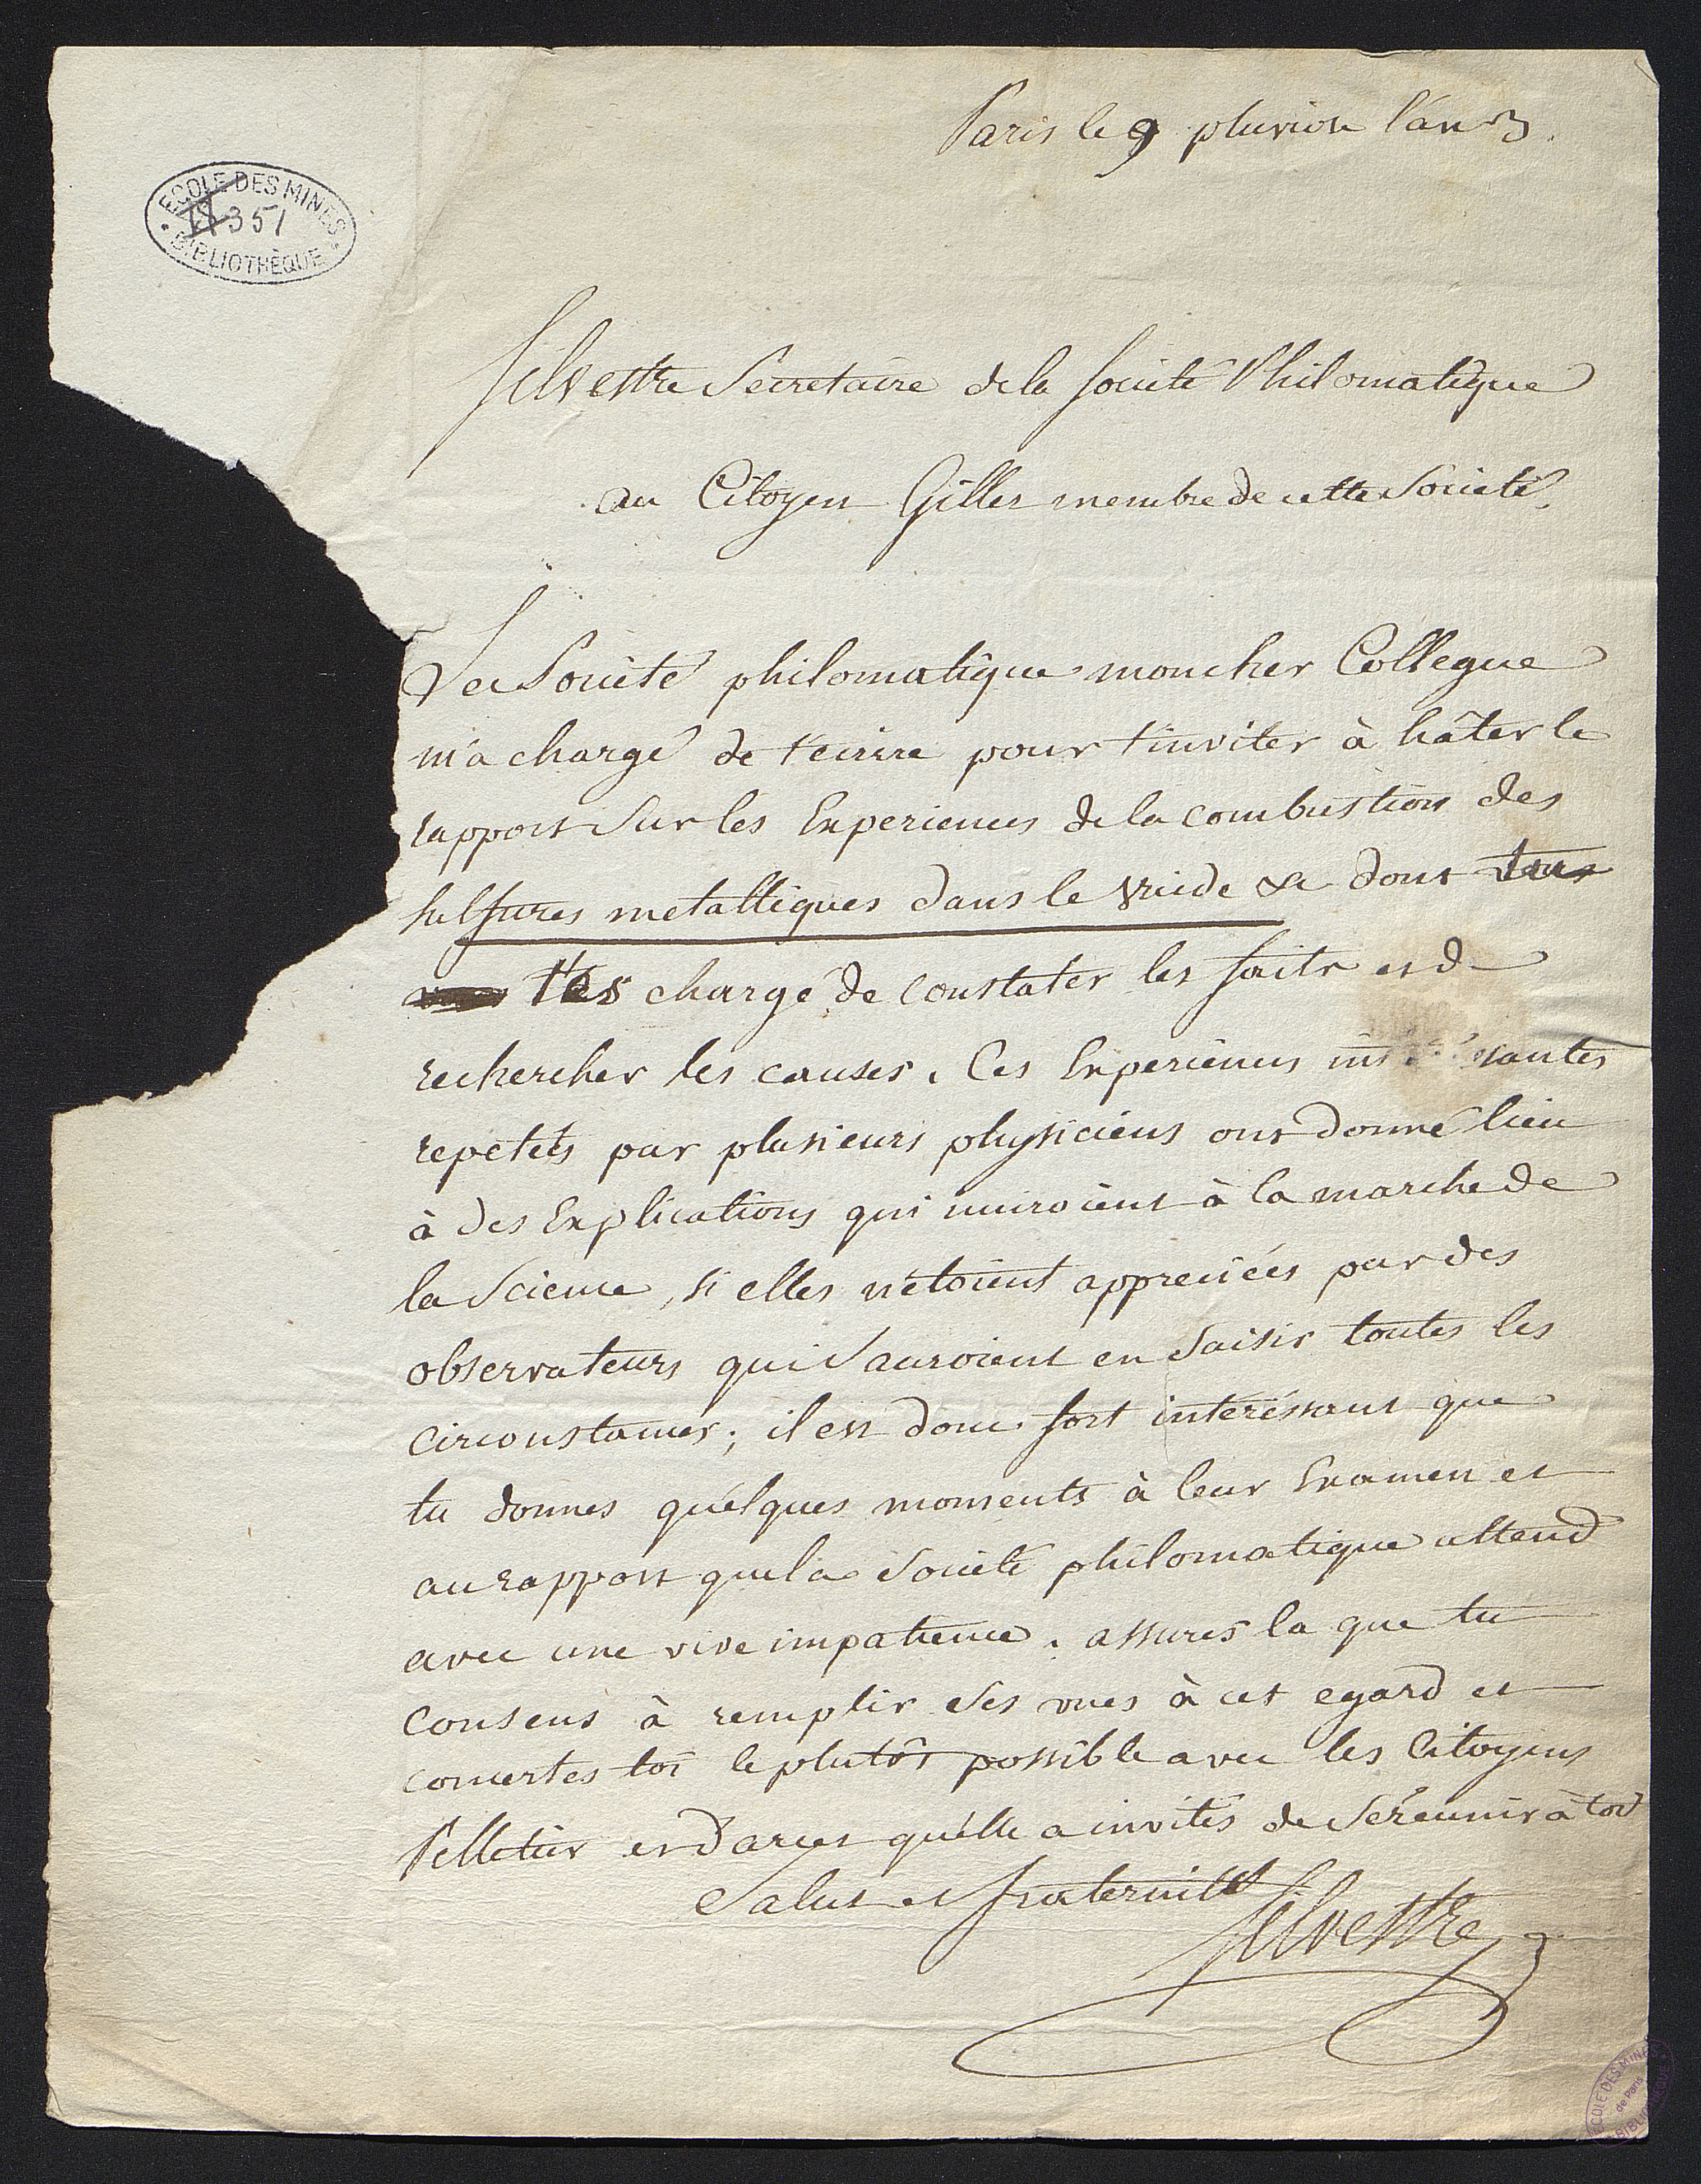 Paris le 9 pluviose l'an 3.
ECOLE DES MINES
351
BIBLIOTHÈQUE
Silvestre Secretaire de la Société Philomatique
au Citoyen Gilles membre de cette Société.
La Société philomatique mon cher Collegue
m'a chargé de t'ecrire pour t'inviter à hâter le
rapport sur les Experiences de la combustion des
sulfures metalliques dans le vuide &c dont
t'es chargé de constater les faits et de
rechercher les causes. Ces Experiences interessantes
repetées par plusieurs physiciens ont donné lieu
à des Explications qui nuiroient à la marche de
la Science, si elles n'étoient appreciées par des
observateurs qui sauroient en saisir toutes les
circonstances; il est donc fort interéssant que
tu donnes quélques moments à leur Examen et
au rapport que la Société philomatique attend
avec une vive impatience. assures la que tu
consens à remplir ses vues à cet egard et
concertes toi le plutôt possible avec les Citoyens
Pelletier et Darcet qu'elle a invités de se réunir à toi
Salut et fraternité
Silvestre
ECOLE DES MINES
de Paris
BIBLIOTHEQUE